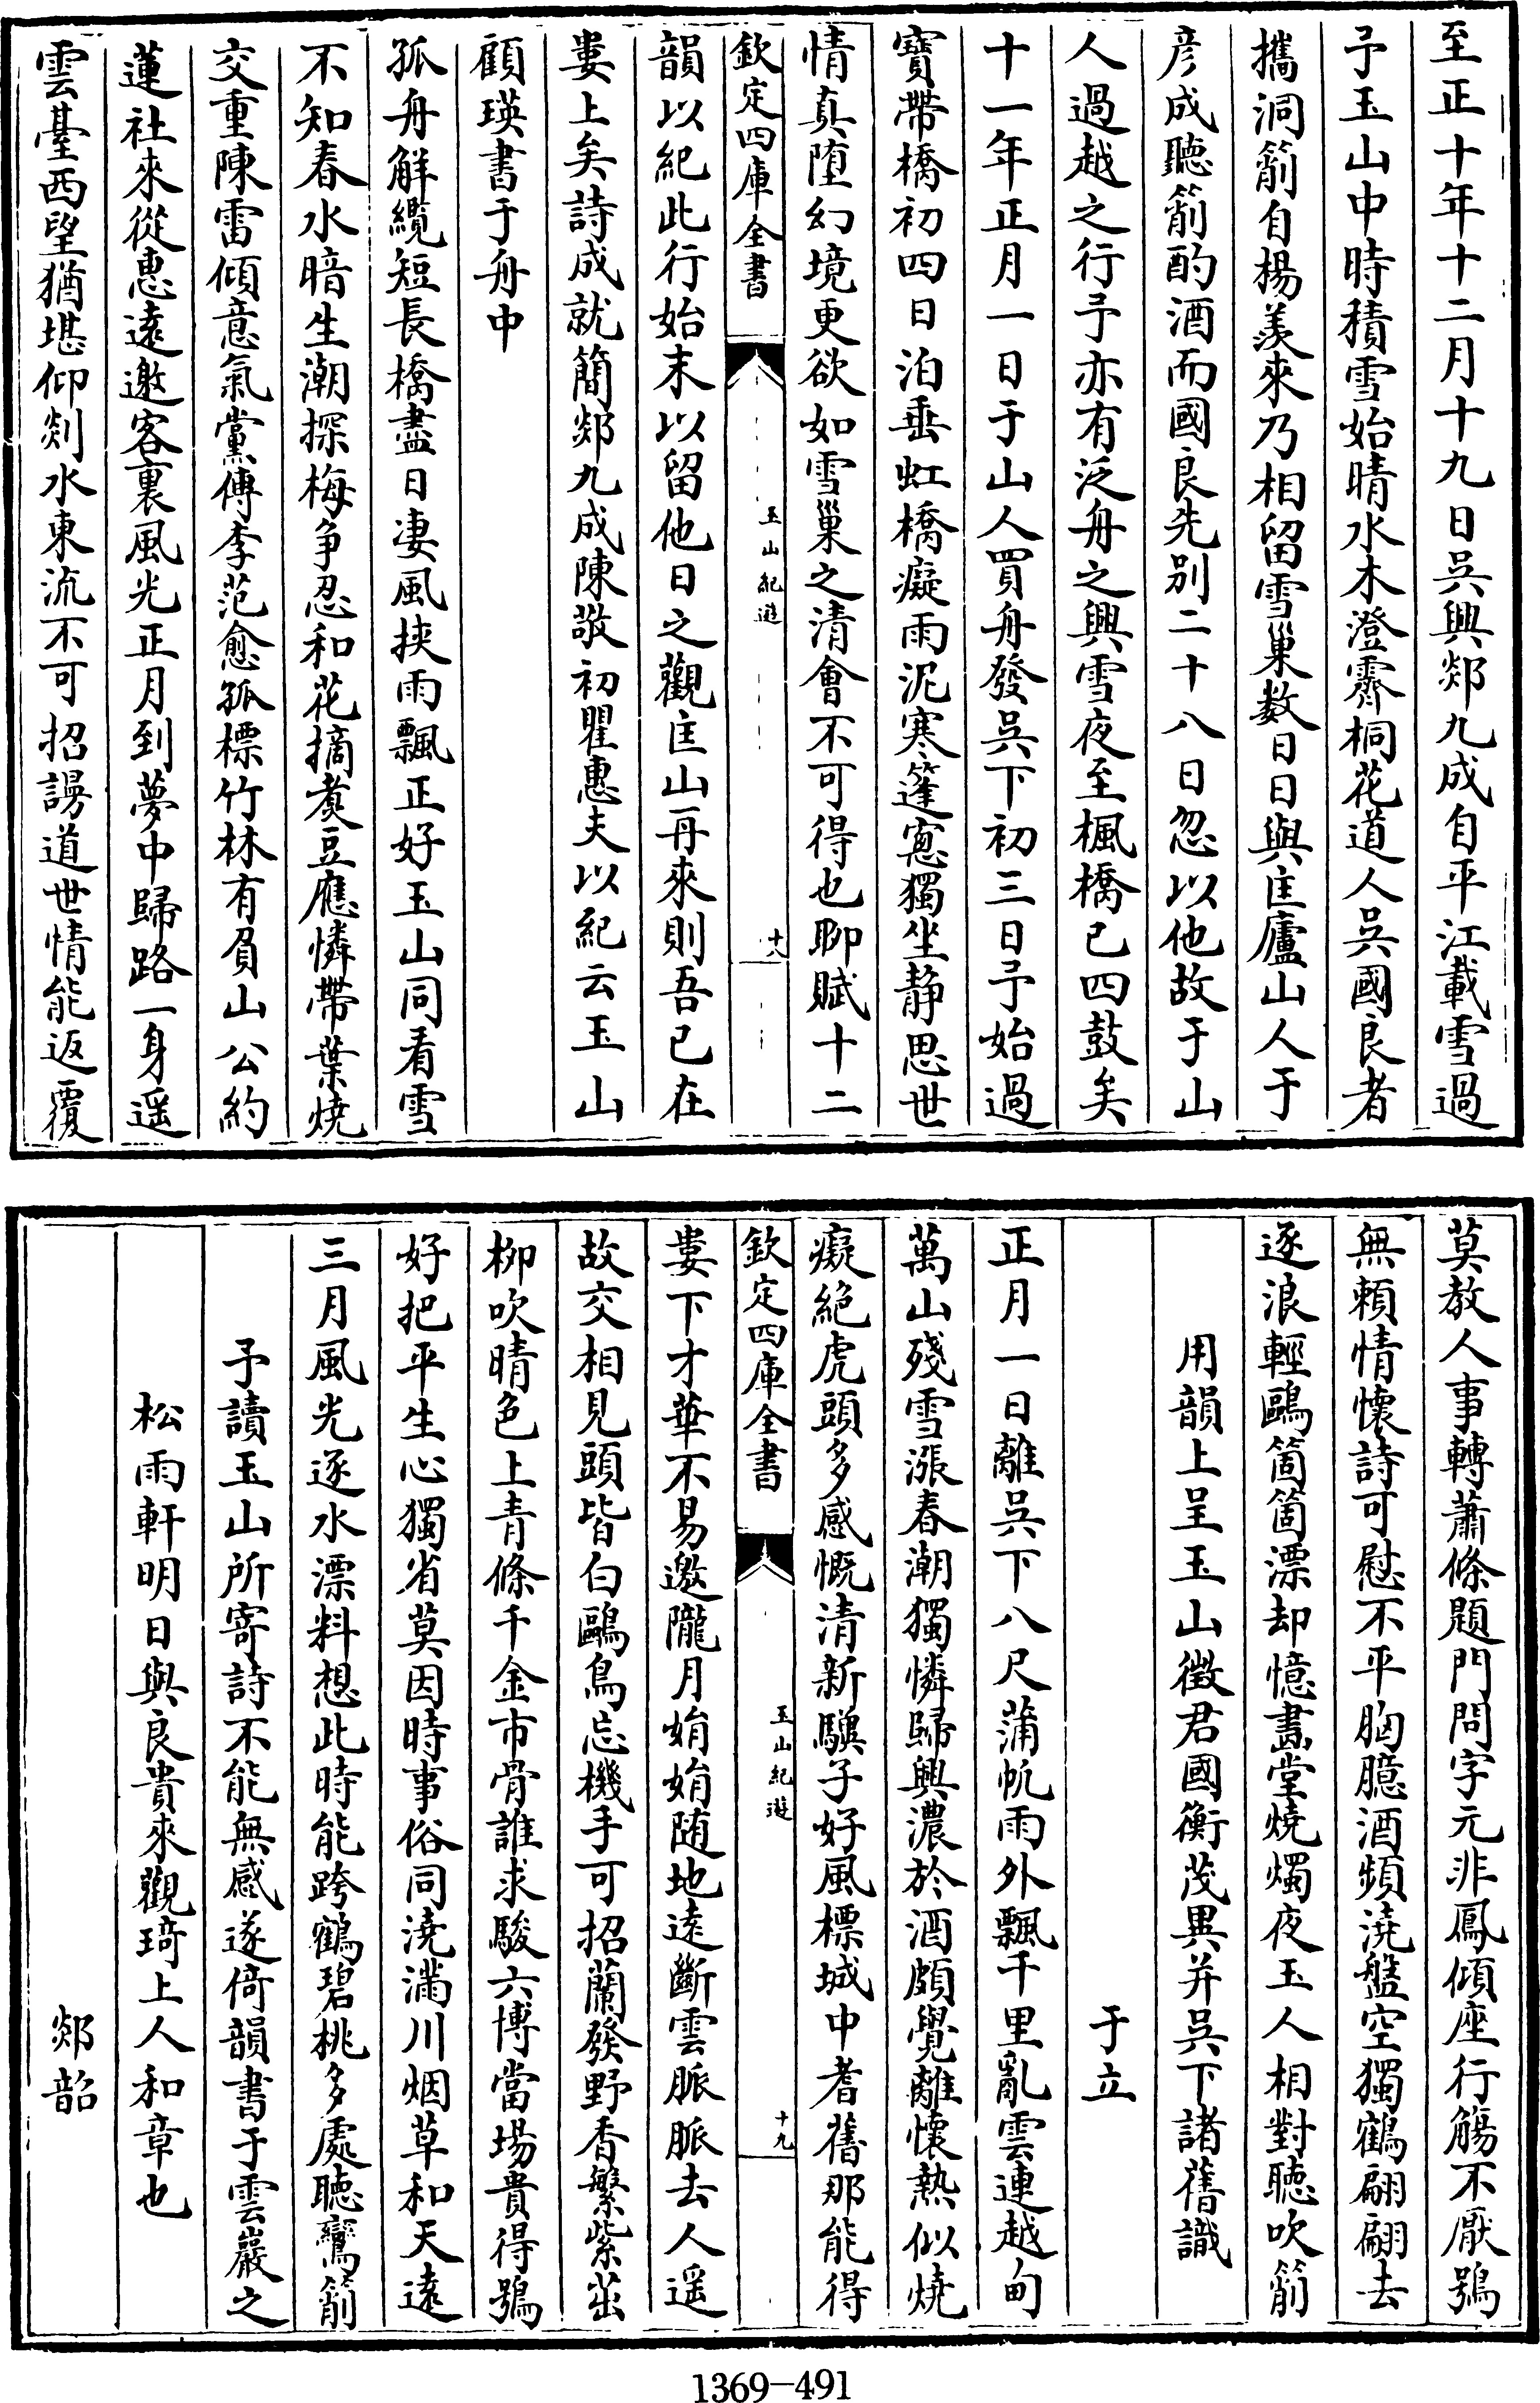 至正十年十二月十九日吳興郯九成自平江載雪過
予玉山中時積雪始晴水木澄霽桐花道人吳國良者
攜洞簫自楊羨來乃相留雪巢數日日與匡廬山人于
彥成聽簫酌酒而國良先别二十八日忽以他故于山
人過越之行予亦有泛舟之興雪夜至楓橋已四鼓矣
十一年正月一日于山人買舟發吳下初三日予始過
寶帶橋初四日泊垂虹橋癡雨泥寒篷窻獨坐静思世
情真墮幻境更欲如雪巢之清會不可得也聊賦十二
欽定四庫全書
玉山紀遊
十八
韻以紀此行始末以留他日之觀匡山再來則吾已在
婁上矣詩成就簡郯九成陳敬初瞿惠夫以紀云玉山
顧瑛書于舟中
孤舟解纜短長橋盡日淒風挾雨飄正好玉山同看雪
不知春水暗生潮探梅争忍和花摘煑豆應憐帶葉燒
交重陳雷傾意氣黨傅李范愈孤標竹林有負山公約
蓮社來從惠遠邀客裏風光正月到夢中歸路一身遥
雲臺西望猶堪仰剡水東流不可招謾道世情能返覆
莫教人事轉蕭條題門問字元非鳳傾座行觴不厭鴞
無賴情懷詩可慰不平胸臆酒頻澆盤空獨鶴翩翩去
逐浪輕鷗箇箇漂却憶畵堂燒燭夜玉人相對聽吹簫
用韻上呈玉山徵君國衡茂異并吳下諸舊識
于立
正月一日離吳下八尺蒲帆雨外飄千里亂雲連越甸
萬山殘雪漲春潮獨憐歸興濃於酒頗覺離懷熱似燒
癡絶虎頭多感慨清新驥子好風標城中耆舊那能得
欽定四庫全書
玉山紀遊
十九
婁下才華不易邀隴月娟娟随地遠斷雲脈脈去人遥
故交相見頭皆白鷗鳥忘機手可招蘭發野香繁紫茁
栁吹晴色上青條千金市骨誰求駿六博當場貴得鴞
好把平生心獨省莫因時事俗同澆滿川烟草和天遠
三月風光逐水漂料想此時能跨鶴碧桃多處聽鸞簫
予讀玉山所寄詩不能無感遂倚韻書于雲巖之
松雨軒明日與良貴來觀琦上人和章也
郯韶
1369-491